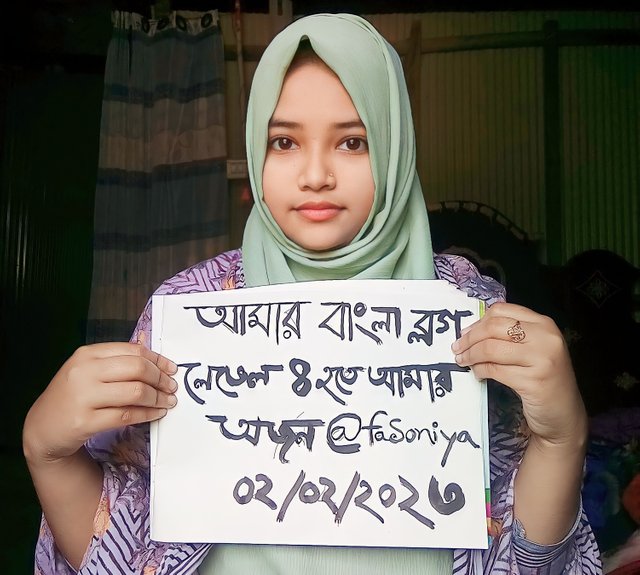 আমার বাংলা ব্লগ
লেভেল ৪ হতে আমার
অর্জন @fasoniya
০২/০২/২০২৩